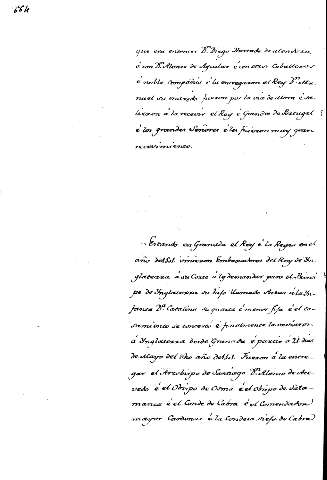 664
que era entonces Dn. Diego Hurtado de Mendoza,
é con Dn. Alonso de Aguilar é con otros Caballeros
é noble compañia é la entregaron al Rey Dn. Ma-
nuel su marido fueron por la via de Mora é sa-
lieron á la recevir el Rey é Grandes de Portugal
é los grandes Señores é les ficieron muy gran
recevimiento.
Estando en Granada el Rey é la Reyna en el
año del SI. vinieron Embaxadores del Rey de In-
glaterra á su Corte á le demandar para el Princi-
pe de Inglaterra su hijo llamado Artus á la In-
fanta Da. Catalina su quarta é menor fija é el ca-
samiento se concertó é finalmente la enviaron
á Inglaterra desde Granada é partió á 21 dias
de Mayo del dho año del SI. Fueron á la entre-
gar el Arzobispo de Santiago Dn. Alonso de Aze-
vedo é el Obispo de Osma é el Obispo de Sala-
manca é el Conde de Cabra é el Comendador
mayor Cardenas é la Condesa vieja de Cabra